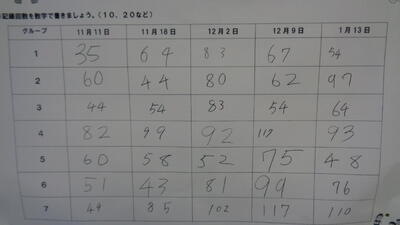 記録回数を数字で書きましょう。（10、20など）
グループ 11月11日 11月18日 12月2日 12月9日 1月13日
1 35 64 83 67 54
2 60 44 80 62 97
3 44 54 83 54 64
4 82 99 92 110 93
5 60 58 52 75 48
6 51 43 81 99 76
7 49 85 102 117 110